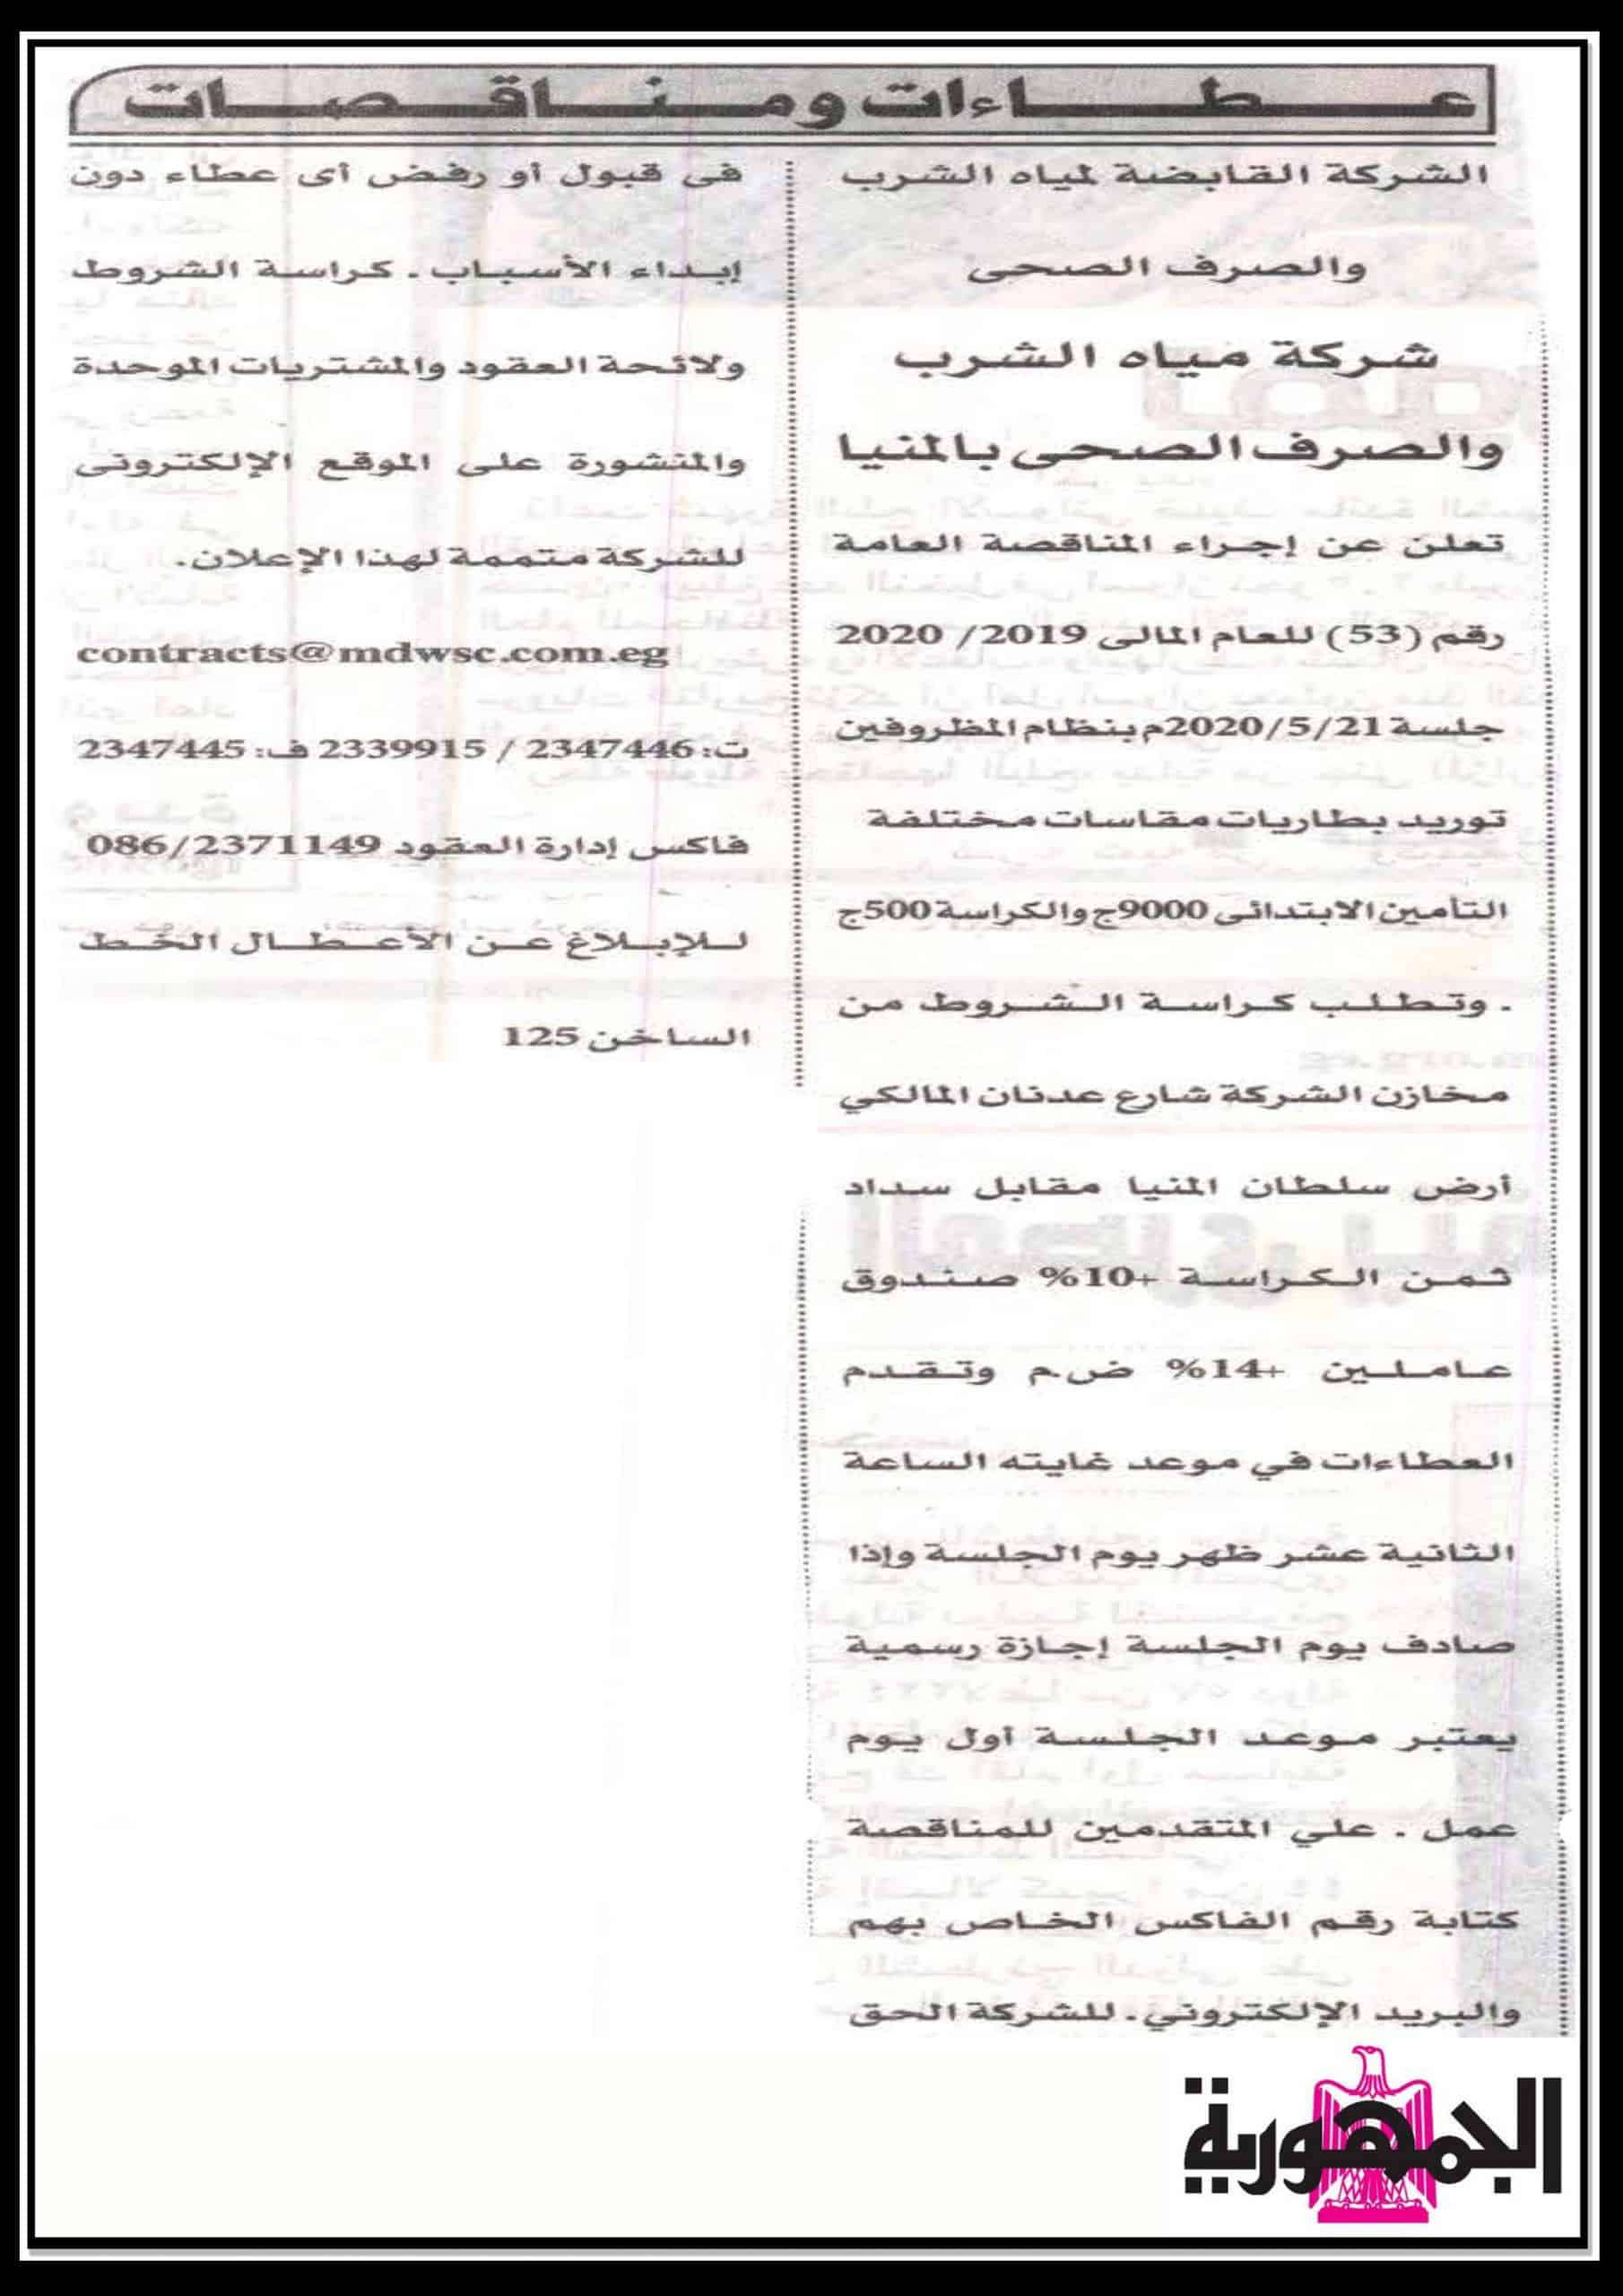 عطاءات ومناقصات
الشركة القابضة لمياه الشرب
والصرف الصحى
شركة مياه الشرب
والصرف الصحى بالمنيا
تعلن عن إجراء المناقصة العامة
رقم (53) للعام المالى 2019/ 2020
جلسة 2020/5/21م بنظام المظروفين
توريد بطاريات مقاسات مختلفة
التأمين الابتدائى 9000ج والكراسة 500ج
. وتطلب كراسة الشروط من
مخازن الشركة شارع عدنان المالكي
أرض سلطان المنيا مقابل سداد
ثمن الكراسة +10% صندوق
عاملين +14% ض.م وتقدم
العطاءات في موعد غايته الساعة
الثانية عشر ظهر يوم الجلسة وإذا
صادف يوم الجلسة إجازة رسمية
يعتبر موعد الجلسة أول يوم
عمل . علي المتقدمين للمناقصة
كتابة رقم الفاكس الخاص بهم
والبريد الإلكتروني. للشركة الحق
فى قبول أو رفض أى عطاء دون
إبداء الأسباب. كراسة الشروط
ولائحة العقود والمشتريات الموحدة
والمنشورة على الموقع الإلكترونى
للشركة متممة لهذا الإعلان.
contracts@mdwsc.com.eg
ت: 2347446 / 2339915 ف: 2347445
فاكس إدارة العقود 086/2371149
للإبلاغ عن الأعطال الخط
الساخن 125
الجمهورية